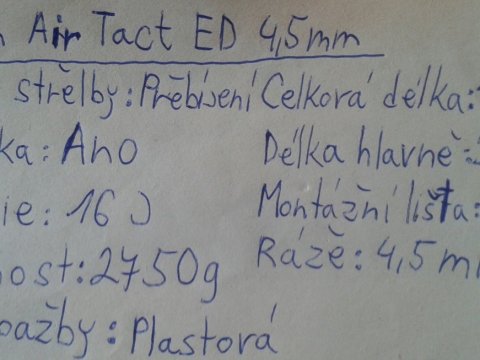 Air Tact ED 4,5mm
střelby: Přebíjení Celková délka:
ka: Ano Délka hlavně:
ie: 16 J Montážní lišta:
ost: 2750g Ráže: 4,5 m
pažby: Plastová